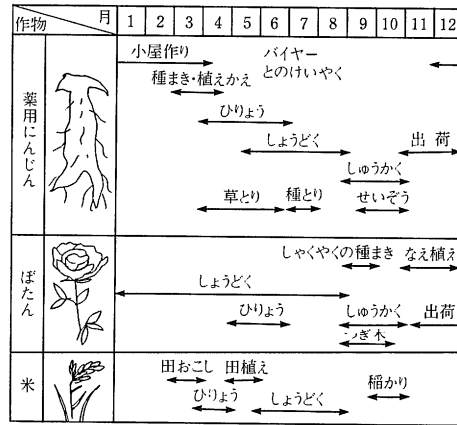 作物 月 1 2 3 4 5 6 7 8 9 10 11 12
薬用にんじん
小屋作り
バイヤー
とのけいやく
種まき・植えかえ
ひりょう
しょうどく
出荷
しゅうかく
草とり
種とり
せいぞう
ぼたん
しゃくやくの種まき
なえ植え
しょうどく
ひりょう
しゅうかく
出荷
つぎ木
米
田おこし
田植え
稲かり
ひりょう
しょうどく